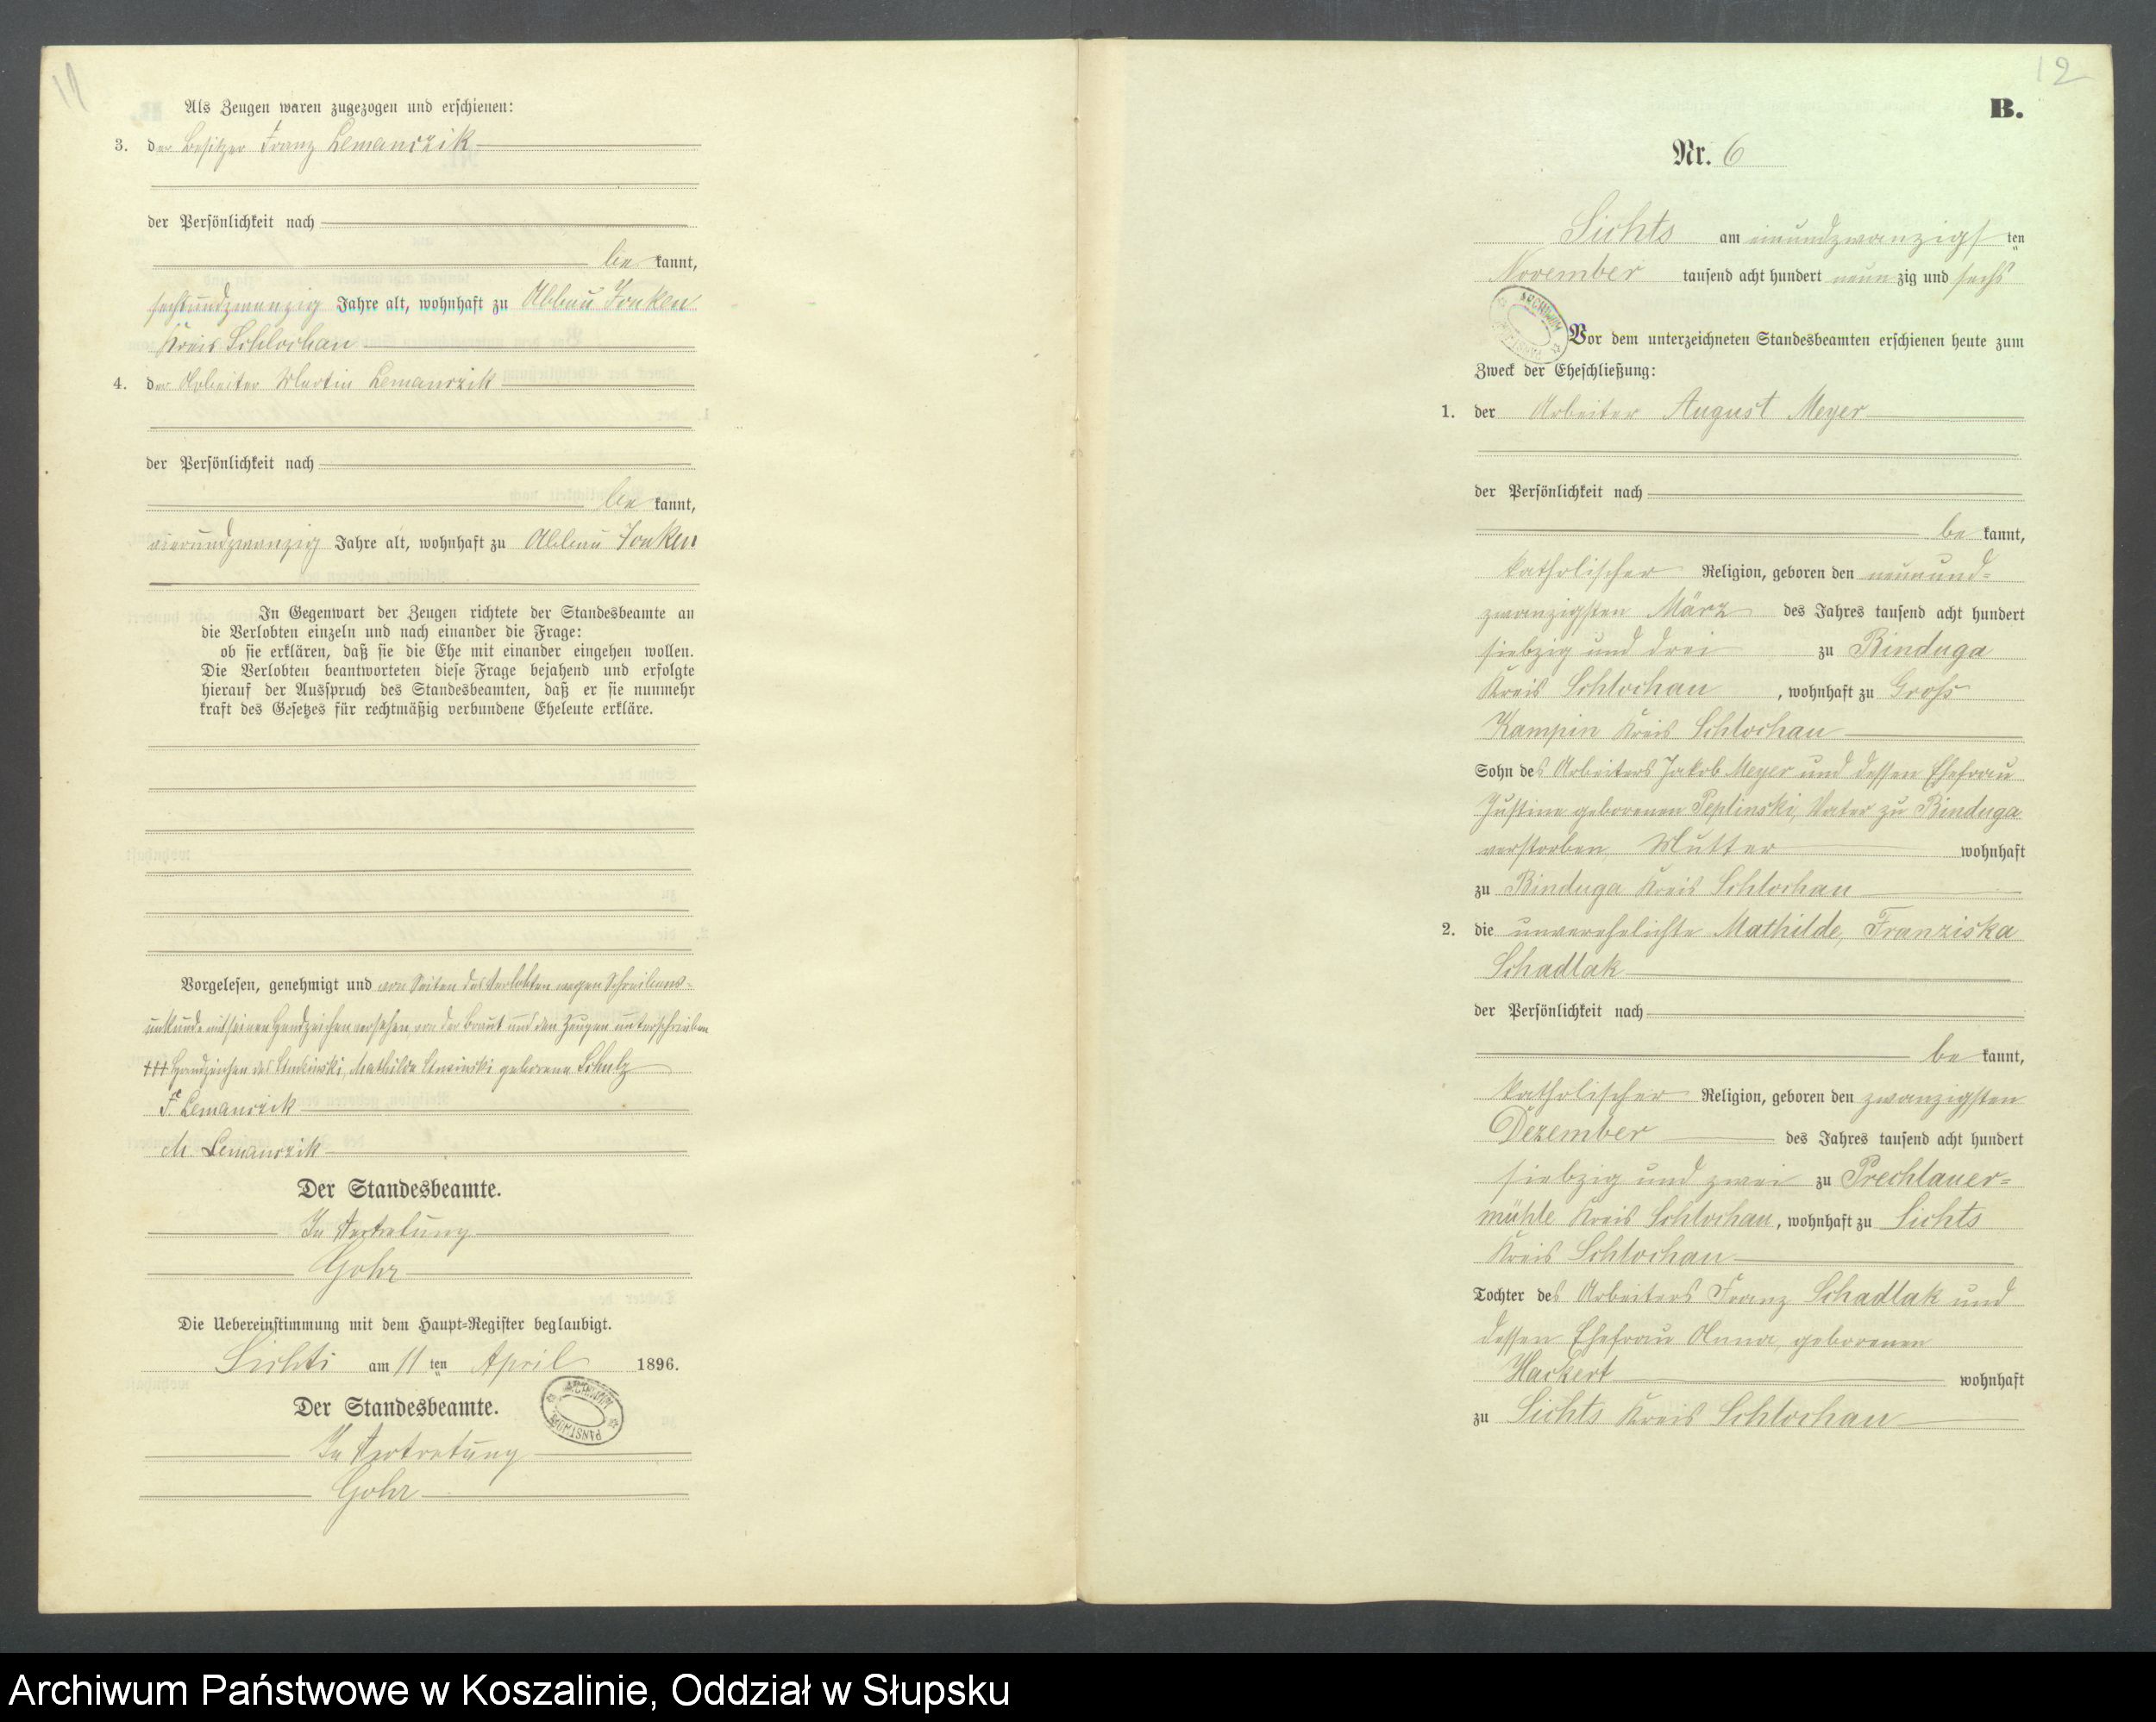 11
Als Zeugen waren zugezogen und erschienen:
3. der Besitzer Franz Lemanczik
der Persönlichkeit nach
be kannt,
sechsundzwanzig Jahre alt, wohnhaft zu Abbau Zonken
Kreis Schlochau
4. der Arbeiter Martin Lemanczik
der Persönlichkeit nach
be kannt,
vierundzwanzig Jahre alt, wohnhaft zu Abbau Zonken
In Gegenwart der Zeugen richtete der Standesbeamte an
die Verlobten einzeln und nach einander die Frage:
ob sie erklären, daß sie die Ehe mit einander eingehen wollen.
Die Verlobten beantworteten diese Frage bejahend und erfolgte
hierauf der Ausspruch des Standesbeamten, daß er sie nunmehr
kraft des Gesetzes für rechtmäßig verbundene Eheleute erkläre.
Vorgelesen, genehmigt und von Seiten des Verlobten wegen Schreibens-
unkunde mit seinen Handzeichen versehen, von der Braut und den Zeugen unterschrieben
+++ Handzeichen des Mathilde geborene Schulz
F. Lemanczik
M. Lemanczik
Der Standesbeamte.
In Vertretung
Gohr
Die Uebereinstimmung mit dem Haupt-Register beglaubigt.
Lichts am 11 ten April 1896.
Der Standesbeamte.
In Vertretung
Gohr
ARCHIWUM PAŃSTWOWE
12
B.
Nr. 6
Sichts am einundzwanzigs ten
November tausend acht hundert neun zig und sechs
ARCHIWUM
Vor dem unterzeichneten Standesbeamten erschienen heute zum
Zweck der Eheschließung:
1. der Arbeiter August Meyer
der Persönlichkeit nach
be kannt,
katholischer Religion, geboren den neunund-
zwanzigsten März des Jahres tausend acht hundert
siebzig und drei zu Binduga
Kreis Schlochau, wohnhaft zu Groß
Kampin Kreis Schlochau
Sohn des Arbeiters Jakob Meyer und dessen Ehefrau
Justine geborenen Peplinski, Vater zu Binduga
verstorben, Mutter wohnhaft
zu Binduga Kreis Schlochau
2. die unverehelichte Mathilde, Franziska
Schadlak
der Persönlichkeit nach
be kannt,
katholischer Religion, geboren den zwanzigsten
Dezember des Jahres tausend acht hundert
siebzig und zwei zu Prechlauer-
mühle Kreis Schlochau, wohnhaft zu Sichts
Kreis Schlochau
Tochter des Arbeiters Franz Schadlak und
dessen Ehefrau Anna, geborenen
Hackert wohnhaft
zu Sichts Kreis Schlochau
Archiwum Państwowe w Koszalinie, Oddział w Słupsku